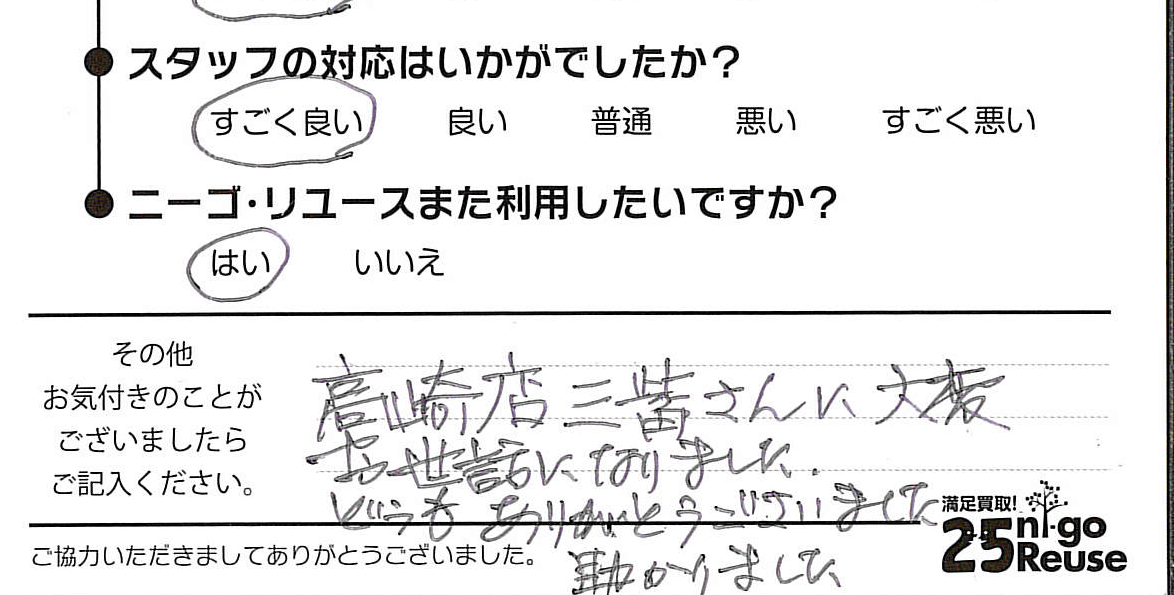 スタッフの対応はいかがでしたか？
すごく良い 良い 普通 悪い すごく悪い
ニーゴ・リユースまた利用したいですか？
はい いいえ
その他
お気付きのことが
ございましたら
ご記入ください。
高崎店 三 さんに 大変
お世話になりました.
どうもありがとうございました
助かりました
ご協力いただきましてありがとうございました。
満足買取!
25 ni・go
Reuse